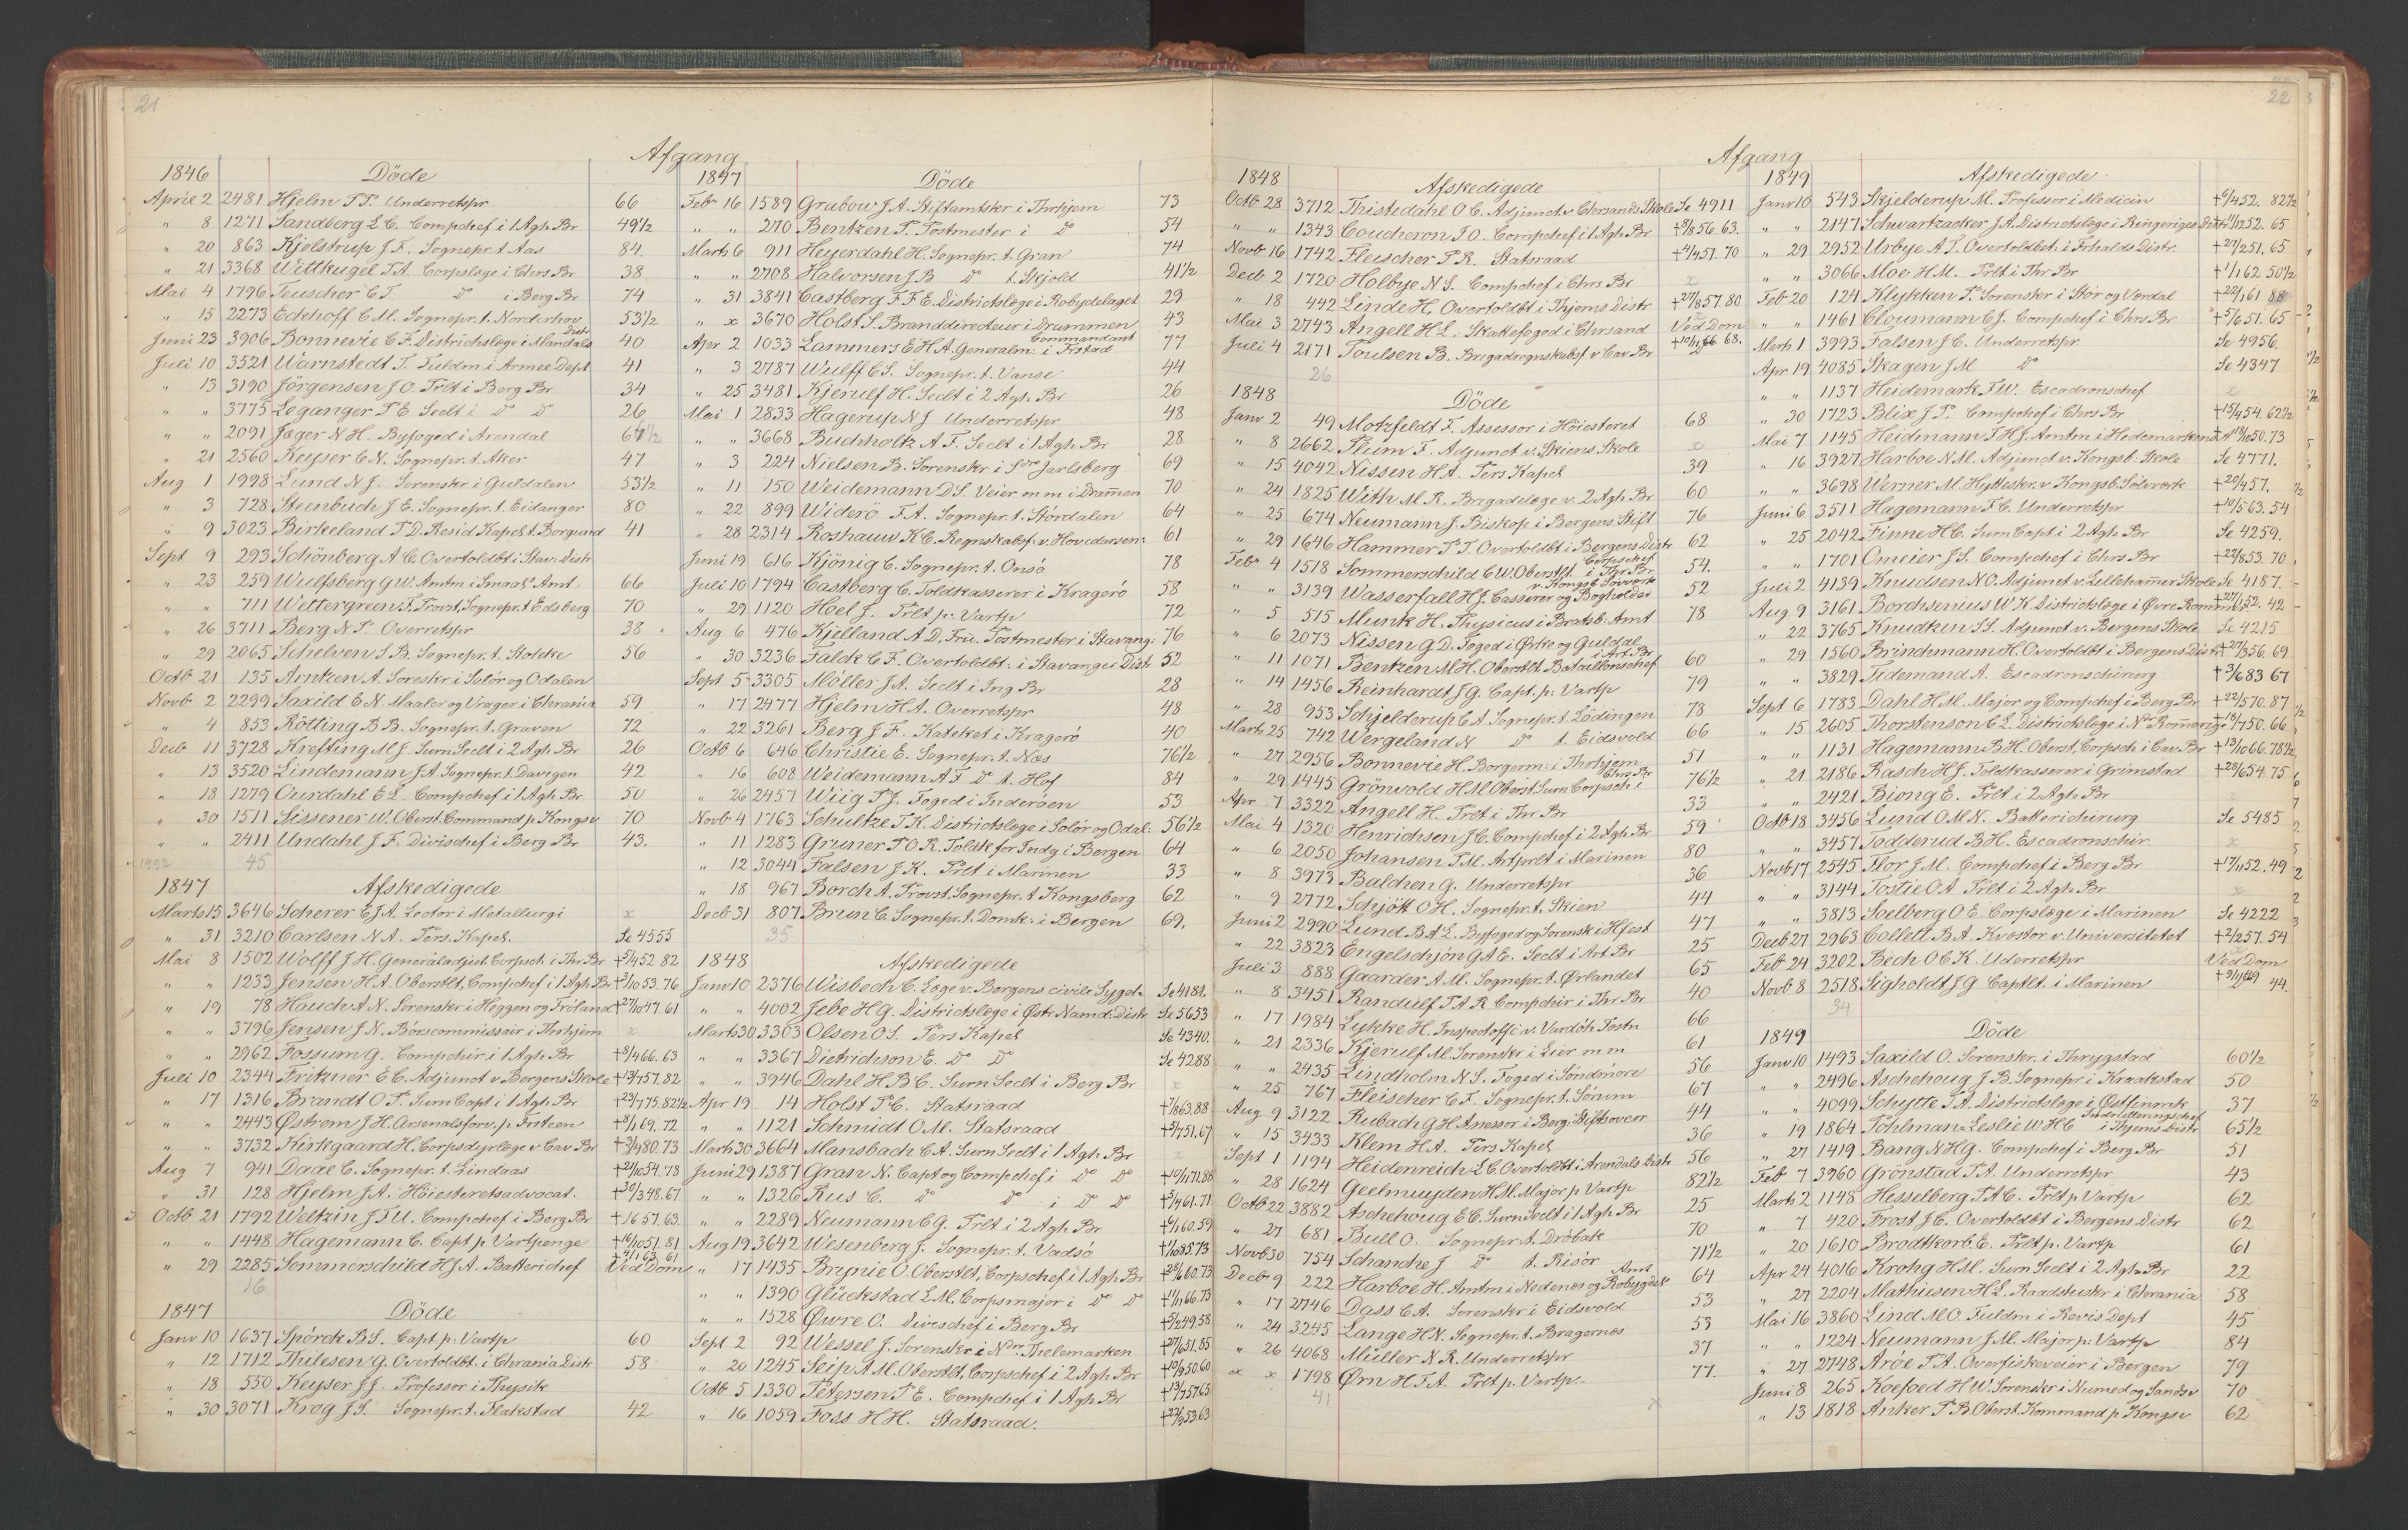 21
Afgang
1846 Döde
Aprie 2 2481 Hjelm P.P. Underretspr 66
" 8 1271 Sandberg L C. Compchef i 1 Agh Br 49½
" 20 863 Kjelstrup J F. Sognepr. t. Aas 84
" 21 3368 Wittkugel P A. Corpslæge i Chrs Br 38
Mai 4 1796 Teuscher C T Do i Berg Br 74
" 15 2273 Eckhoff C M. Sognepr. t. Norderhov 53½
Juni 23 3906 Bonnevie C F. Districtslæge i Mandals Distr 40
Juli 10 3521 Warnstedt T. Fuldm i Armee Dept 41
" 13 3190 Jörgensen J O. Prlt i Berg Br 34
" " 3775 Leganger P E Seclt i Do Do 26
" " 2091 Jæger N H. Byfoged i Arendal 61½
" 21 2560 Keyser C N. Sognepr. t. Aker 47
Aug 1 1998 Lund N J. Sorenskr i Guldalen 53½
" 3 728 Steenbuch J E. Sognepr. t. Eidanger 80
" 9 3023 Birkeland P D. Resid Kapel t. Borgund 41
Sept 9 293 Schönberg A C. Overtoldbt i Stav: Distr
" 23 259 Wulfsberg G W. Amtm i Smaal: Amt. 66
" " 711 Wettergreen P. Provst, Sognepr. t Edsberg 70
" 26 3711 Berg N P. Overretspr 38
" 29 2065 Schelven S B. Sognepr. t. Stokke 56
Octb 21 135 Arntzen A. Soreskr i Solör og Odalen
Novb 2 2299 Saxild E N. Maaler og Vrager i Chrania 59
" 4 853 Rötting B B. Sognepr. t. Graven 72
Decb 11 3728 Krefting M J. Surn Seclt i 2 Agh Br 26
" 13 3520 Lindemann J A. Sognepr. t. Davigen 42
" 18 1279 Ourdahl E L. Compchef i 1 Agh Br 50
" 30 1571 Sissener W. Oberst. Command p Kongsv 70
" " 2411 Undahl J F. Divischef i Berg Br 43.
45
1847 Afskedigede
Marts 15 3646 Scherer C J A. Lector i Metallurgi x
" 31 3210 Carlsen N A. Pers. Kapel. Se 4555
Mai 8 1502 Wolff J H. Generaladjut. Corpsch. i Thr Br †5/4 52. 82
" " 1233 Jensen H A. Oberstlt, Compchef i 1 Agh Br †3/10 53. 76
" 19 78 Hauch A N. Sorenskr i Heggen og Fröland †27/10 47. 61
" " 3796 Jensen J N. Börscommissair i Thrhjem x
" " 2962 Fossum G. Compchir i 1 Agh Br †8/4 66. 63
Juli 10 2344 Fritzner E C. Adjunct v Bergens Skole †13/7 57. 82
" 17 1316 Brandt O P. Surn Capt i 1 Agh Br †23/7 75. 82½
" " 2443 Østrem J H. Arsenalsforv. p Fritzen †8/1 69. 72
" " 3732 Kirkgaard H. Corpsdyrlæge v Cav Br †3/4 80. 73
Aug 7 941 Daae C. Sognepr. t. Lindaas †21/10 54. 78
" 31 128 Hjelm J A. Höiesteretsadvocat. †30/3 48. 67
Octb 21 1792 Weltzin J F U. Compchef i Berg Br †16 57. 63.
" " 1448 Hagemann C. Capt p Vartpenge †16/10 51. 81
" 29 2285 Sommerschild H J A. Batterichef †4/1 63. 61 Ved Dom
16
1847 Döde
Janv 10 1637 Spörck B S. Capt p: Vartp 60
" 12 1712 Thilesen G. Overtoldbt. i Chrania Distr 58
" 18 550 Keyser J J. Professor i Physik
" 30 3071 Krog J S. Sognepr. t. Flakstad 42
1847 Döde
Febr 16 1589 Grabow J A. Stiftamtskr i Thrhjem 73
" " 270 Bentzen P. Postmester i Do 54
Marts 6 911 Heyerdahl H. Sognepr. t. Gran 74
" " 2708 Halvorsen J B Do t. Skjold 41½
" 31 3841 Castberg F F E. Districtslæge i Robydelaget 29
" x 3670 Holst S. Branddirecteur i Drammen 43
Apr 2 1033 Lammers E H A. Generalm: Commandant i Frstad 77
" 3 2787 Wulff C S. Sognepr. t. Vanse 44
" 25 3481 Kjerulf H. Seclt i 2 Agh Br 26
Mai 1 2833 Hagerup N J Underretspr 48
" " 3668 Buchholtz A F. Seclt i 1 Agh Br 28
" 3 224 Nielsen B. Sorenskr i Sdre Jarlsberg 69
" 11 150 Weidemann D S. Veier m m i Dramen 70
" 22 899 Widerö T A. Sognepr. t. Stördalen 64
" 28 2314 Roshauw K C. Regnskabsf. v. Hovedarsen: 61
Juni 19 616 Kjönig C. Sognepr. t. Onsö 78
Juli 10 1794 Castberg C. Toldkasserer i Kragerö 58
" 29 1120 Hoel J. Prlt p: Vartp 72
Aug 6 476 Kjelland A D. Fru. Postmester i Stavang: 76
" 30 3236 Falck C F. Overtoldbt: i Stavanger Distr 52
Sept 5 3305 Möller J A. Seclt i Ing Br 28
" 17 2477 Hjelm H A. Overretspr 48
" 22 3261 Berg J F. Kateket i Kragerö 40
Octb 6 646 Christie E. Sognepr. t. Næs 76½
" 16 608 Weidemann A F Do t. Hof 84
" 26 2457 Wiig P J. Foged i Inderöen 53
Novb 4 1763 Schultze T K. Districtslæge i Solör og Odal: 56½
" 11 1283 Gruner P O R. Toldsk for Indg i Bergen 64
" 12 3044 Falsen J K. Prlt i Marinen 33
" 18 967 Borch A. Provst, Sognepr. t Kongsberg 62
Decb 31 807 Brun C. Sognepr. t. Domk: i Bergen 69.
35
1848 Afskedigede
Janv 10 2376 Wisbech C. Læge v. Bergens civile Sygeh. Se 4181.
" " 4002 Jebe H G. Districtslæge i Østr Namd: Distr Se 5653
Marts 30 3303 Olsen O S. Pers Kapel Se 4340.
" " 3367 Dietrichson E. Do Do Se 4288
" " 3946 Dahl H B C. Surn Seclt i Berg Br x
Apr 19 14 Holst P C. Statsraad †7/8 63. 88
" " 1121 Schmidt O M. Statsraad †5/7 51. 67
Marts 30 3664 Mansbach C A. Surn Seclt i 1 Agh Br x
Juni 29 1387 Gran N. Capt og Compchef i Do Do †10/11 71. 86
" " 1326 Rus C. Do Do i Do Do †5/4 61. 71
" " 2289 Neumann C G. Prlt i 2 Agh Br †9/1 60. 59
Aug 19 3642 Wesenberg J. Sognepr. t. Vadsö †1/10 85 73
" 17 1435 Brynie O. Oberstlt, Corpschef i 1 Agh Br †28/6 60. 73
" " 1390 Glückstad L M. Corpsmajor i Do Do †11/11 66. 73
" " 1528 Øwre O. Divischef i Berg Br †5/2 49. 58
Sept 2 92 Wessel J. Sorenskr i Ndre Thelemarken †27/6 51. 85
" 20 1245 Seip A M. Oberstlt, Corpschef i 2 Agh Br †10/9 50. 60
Octb 5 1330 Petersen P E. Compchef i 1 Agh Br †13/7 57. 65
" 16 1059 Foss H H. Statsraad. †22/9 53. 63
22
Afgang
1848 Afskedigede
Octb 28 3712 Thistedahl O C. Adjunct v Chrsands Skole Se 4911
" " 1343 Coucheron J O. Compchef i 1 Agh Br †9/8 56. 63.
Novb 16 1742 Fleischer P R. Statsraad †4/4 51. 70
Decb 2 1720 Holbye N S. Compchef i Chrs Br x
" 18 442 Linde H, Overtoldbt i Thjems Distr †27/8 57. 80
Mai 3 2743 Angell H L. Skattefoged i Chrsand Ved Dom
Juli 4 2171 Poulsen B. Brigaderegnskabsf v Cav Br †10/11 66. 68.
26
1848 Döde
Janv 2 49 Motzfeldt F. Assessor i Höiesteret 68
" 8 2662 Plum F. Adjunct v. Skiens Skole x
" 15 4042 Nissen H A. Pers Kapel 39
" 24 1825 With M R. Brigadelæge v. 2 Agh Br 60
" 25 674 Neumann J. Biskop i Bergens Stift 76
" 29 1646 Hammer P T. Overtoldbt i Bergens Distr 62
Febr 4 1518 Sommerschild C W. Oberstlt. Corpschef i Thr Br 54.
" " 3139 Wasserfall H J. Casserer og Bogholder v. Kongsb. Sövværk 52
" 5 515 Munk H. Physicus i Bratsb. Amt 78
" 6 2073 Nissen G D. Foged i Ørke og Guldal
" 11 1071 Bentzen M H. Oberstlt Bataillonschef i Art. Br 60
" 14 1456 Reinhardt J G. Capt. p: Vartp 79
" 28 953 Schjelderup C A Sognepr. t. Lödingen 78
Marts 25 742 Wergeland N Do t. Eidsvold 66
" 27 2956 Bonnevie H. Borgerm: i Thrhjem 51
" 29 1445 Grönvold H M. Oberst, Surn Corpsch i Chrs Br 76½
Apr 7 3322 Angell H. Prlt i Thr Br 33
Mai 4 1320 Henrichsen J C. Compchef i 2 Agh Br 59
" 6 2050 Johansen P M. Artprlt i Marinen 80
" 8 3973 Balchen G. Underretspr 36
" 9 2772 Schjött O H. Sognepr. t. Skien 44
Juni 2 2990 Lund B A L. Byfoged og Sorensk i Hfest 47
" 22 3823 Engelschjön G A E. Seclt i Art Br 25
Juli 3 888 Gaarder A M. Sognepr. t. Ørlandet 65
" 8 3451 Randulf P A R Compchir i Thr Br 40
" 17 1984 Lykke H. Inspectoffc v. Vardöh Festn 66
" 21 2336 Kjerulf M. Sorenskr i Lier m m 61
" " 2435 Lindholm N S. Foged i Söndmöre 56
" 25 767 Fleischer C F. Sognepr. t. Sörum 67
Aug 9 3122 Rubach G H Assessor i Berg: Stiftsoverr 44
" 15 3433 Klem H A. Pers Kapel 36
Sept 1 1194 Heidenreich L C. Overtoldbt i Arendals Distr 56
" 28 1624 Geelmuyden H M. Major p Vartp 82½
Octb 22 3882 Aschehoug E C. Surn Seclt i 1 Agh Br 25
" 27 681 Bull O. Sognepr t. Dröbak 70
Novb 30 754 Schanche J Do t. Risör 71½
Decb 9 222 Harboe H. Amtm i Nedenes og Robygdel. Amt 64
" 17 2746 Dass C A. Sorenskr i Eidsvold 53
" 24 3245 Lange H N. Sognepr. t. Bragernæs 53
" 26 4068 Müller N R. Underretspr 37
x x 1798 Ørn H T A. Prlt p. Vartp. 77.
41
1849 Afskedigede
Janv 10 543 Skjelderup M. Professor i Medicin †6/4 52. 82½
" " 2147 Schwartzacker J A. Districtslæge i Ringeriges Distr †11/11 52. 65
" 29 2952 Urbye A T. Overtoldbet. i Frhalds Distr. †27/2 51. 65
" " 3066 Moe H M. Prlt i Thr Br †1/1 62. 50½
Feb 20 124 Klykken P. Sorenskr i Stör og Verdal †22/1 61 88
" " 1461 Cloumann C J. Compchef i Chrs Br †5/6 51. 65
Marts 1 3993 Falsen J C. Underretspr. Se 4956.
Apr 19 4085 Skagen J M Do Se 4347
" " 1137 Heidemark F W. Escadronschef x
" 30 1723 Blix J P. Compchef i Chrs Br †15/4 54. 62½
Mai 7 1145 Heidmann T H J. Amtm i Hedemarkens A †18/10 50. 73
" 16 3927 Harboe N M. Adjunct v. Kongsb. Skole Se 4771.
" " 3698 Werner M. Hytteskr. v Kongsb. Sölvværk †20/4 57.
Juni 6 3511 Hagemann F C. Underretspr †10/5 63. 54
" 25 2042 Finne H C. Surn Capt i 2 Agh Br Se 4259.
" " 1701 Omeier J S. Compchef i Chrs Br †22/8 53. 70
Juli 2 4139 Knudsen N O. Adjunct v. Lillehamer Skole Se 4187.
Aug 9 3161 Borchsenius W K. Districtslæge i Øvre Romerige †27/1 52. 42
" 22 3765 Knudtzen S S. Adjunct v. Bergens Skole Se 4215
" 29 1560 Brinchmann H. Overtoldbt i Bergens Distr †27/3 56. 69
" " 3829 Tidemand A. Escadronschirurg †3/6 83 67
Sept 6 1783 Dahl H M. Major og Compchef i Berg Br †22/5 70. 87
" 15 2605 Thorstenson C L. Districtslæge i Ndre Romerige †18/7 50. 66
" " 1131 Hagemann B H. Oberst, Corpsch. i Cav Br †13/10 66. 78½
" 21 2186 Rasch H J. Toldkasserer i Grimstad †28/6 54. 75
" " 2421 Biong E. Prlt i 2 Agh Br x
Octb 18 3456 Lund O M N. Batterichirurg Se 5485
" " 3457 Todderud B H. Escadronschir. x
Novb 17 2545 Flor J M. Compchef i Berg Br †17/11 52. 49
" " 3144 Tostie O A Prlt i 2 Agh Br x
" " 3813 Soelberg O E. Corpslæge i Marinen Se 4222
Decb 27 2963 Collett B A. Kvæstor v. Universitetet †2/2 57. 54
Feb 24 3202 Bech O C K. Uderretspr Ved Dom
Novb 8 2518 Sigholdt J G Captlt. i Marinen †9/11 49 44.
34
1849 Döde
Janv 10 1493 Saxild O. Sorenskr. i Thrygstad 60½
" " 2496 Aschehoug J B. Sognepr i Kraakstad 50
" " 4099 Schytte T A. Districtslæge i Østfinmk 37
" 19 1864 Pohlmann Leslie W H C Indrulleringschef i Thjems Distr 65½
" 27 1419 Bang N H G. Compchef i Berg Br 51
Feb 7 3960 Grönstad P A. Underretspr 43
Marts 2 1148 Hesselberg P A C. Prlt p Vartp 62
" 7 420 Frost J C. Overtoldbt i Bergens Distr 62
" 20 1610 Brodtkorb E. Prlt p. Vartp 61
Apr 24 4016 Krohg H M. Surn Seclt i 2 Agh Br 22
" 27 2204 Mathiesen H L. Raadstuskr i Chrania 58
Mai 16 3860 Lind M O. Fuldm i Revis Dept 45
" " 1224 Neumann J M. Major p: Vartp 84
" 27 2748 Aröe P A. Overfiskeveier i Bergen 79
Juni 8 265 Koefoed H W. Sorenskr i Numed og Sandsv 70
" 13 1818 Anker P B. Oberst. Kommand p Kongsv 62